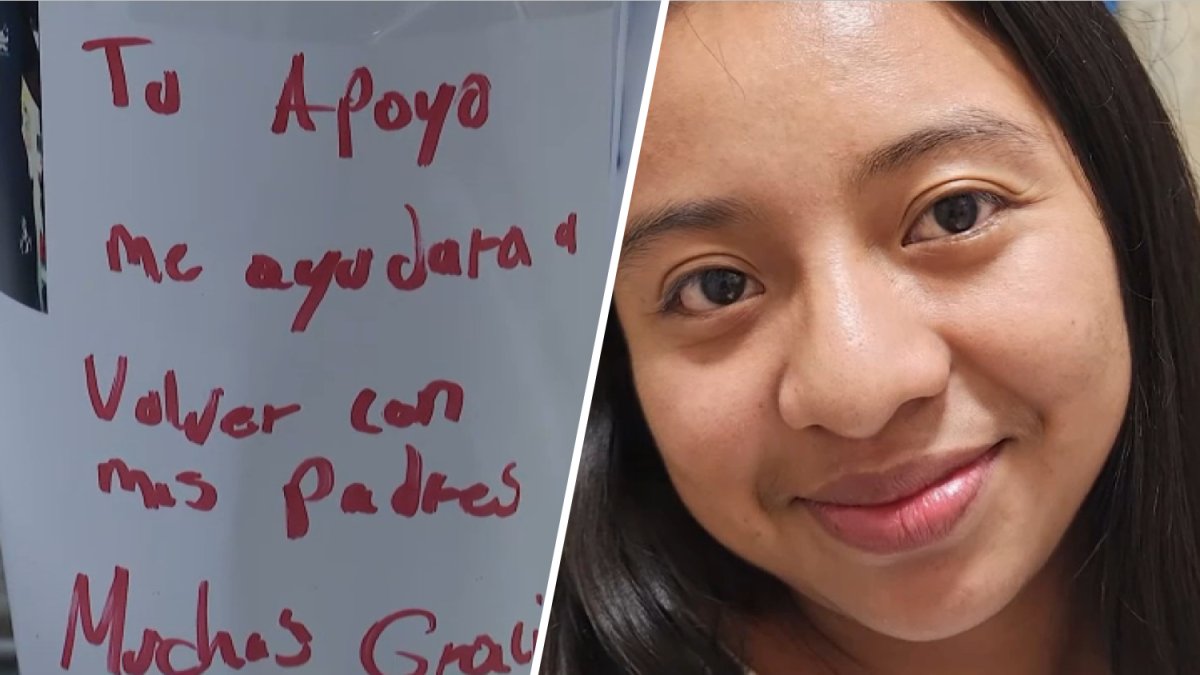 Tu Apoyo
me ayudara a
Volver con
mis padres
Muchas Graci